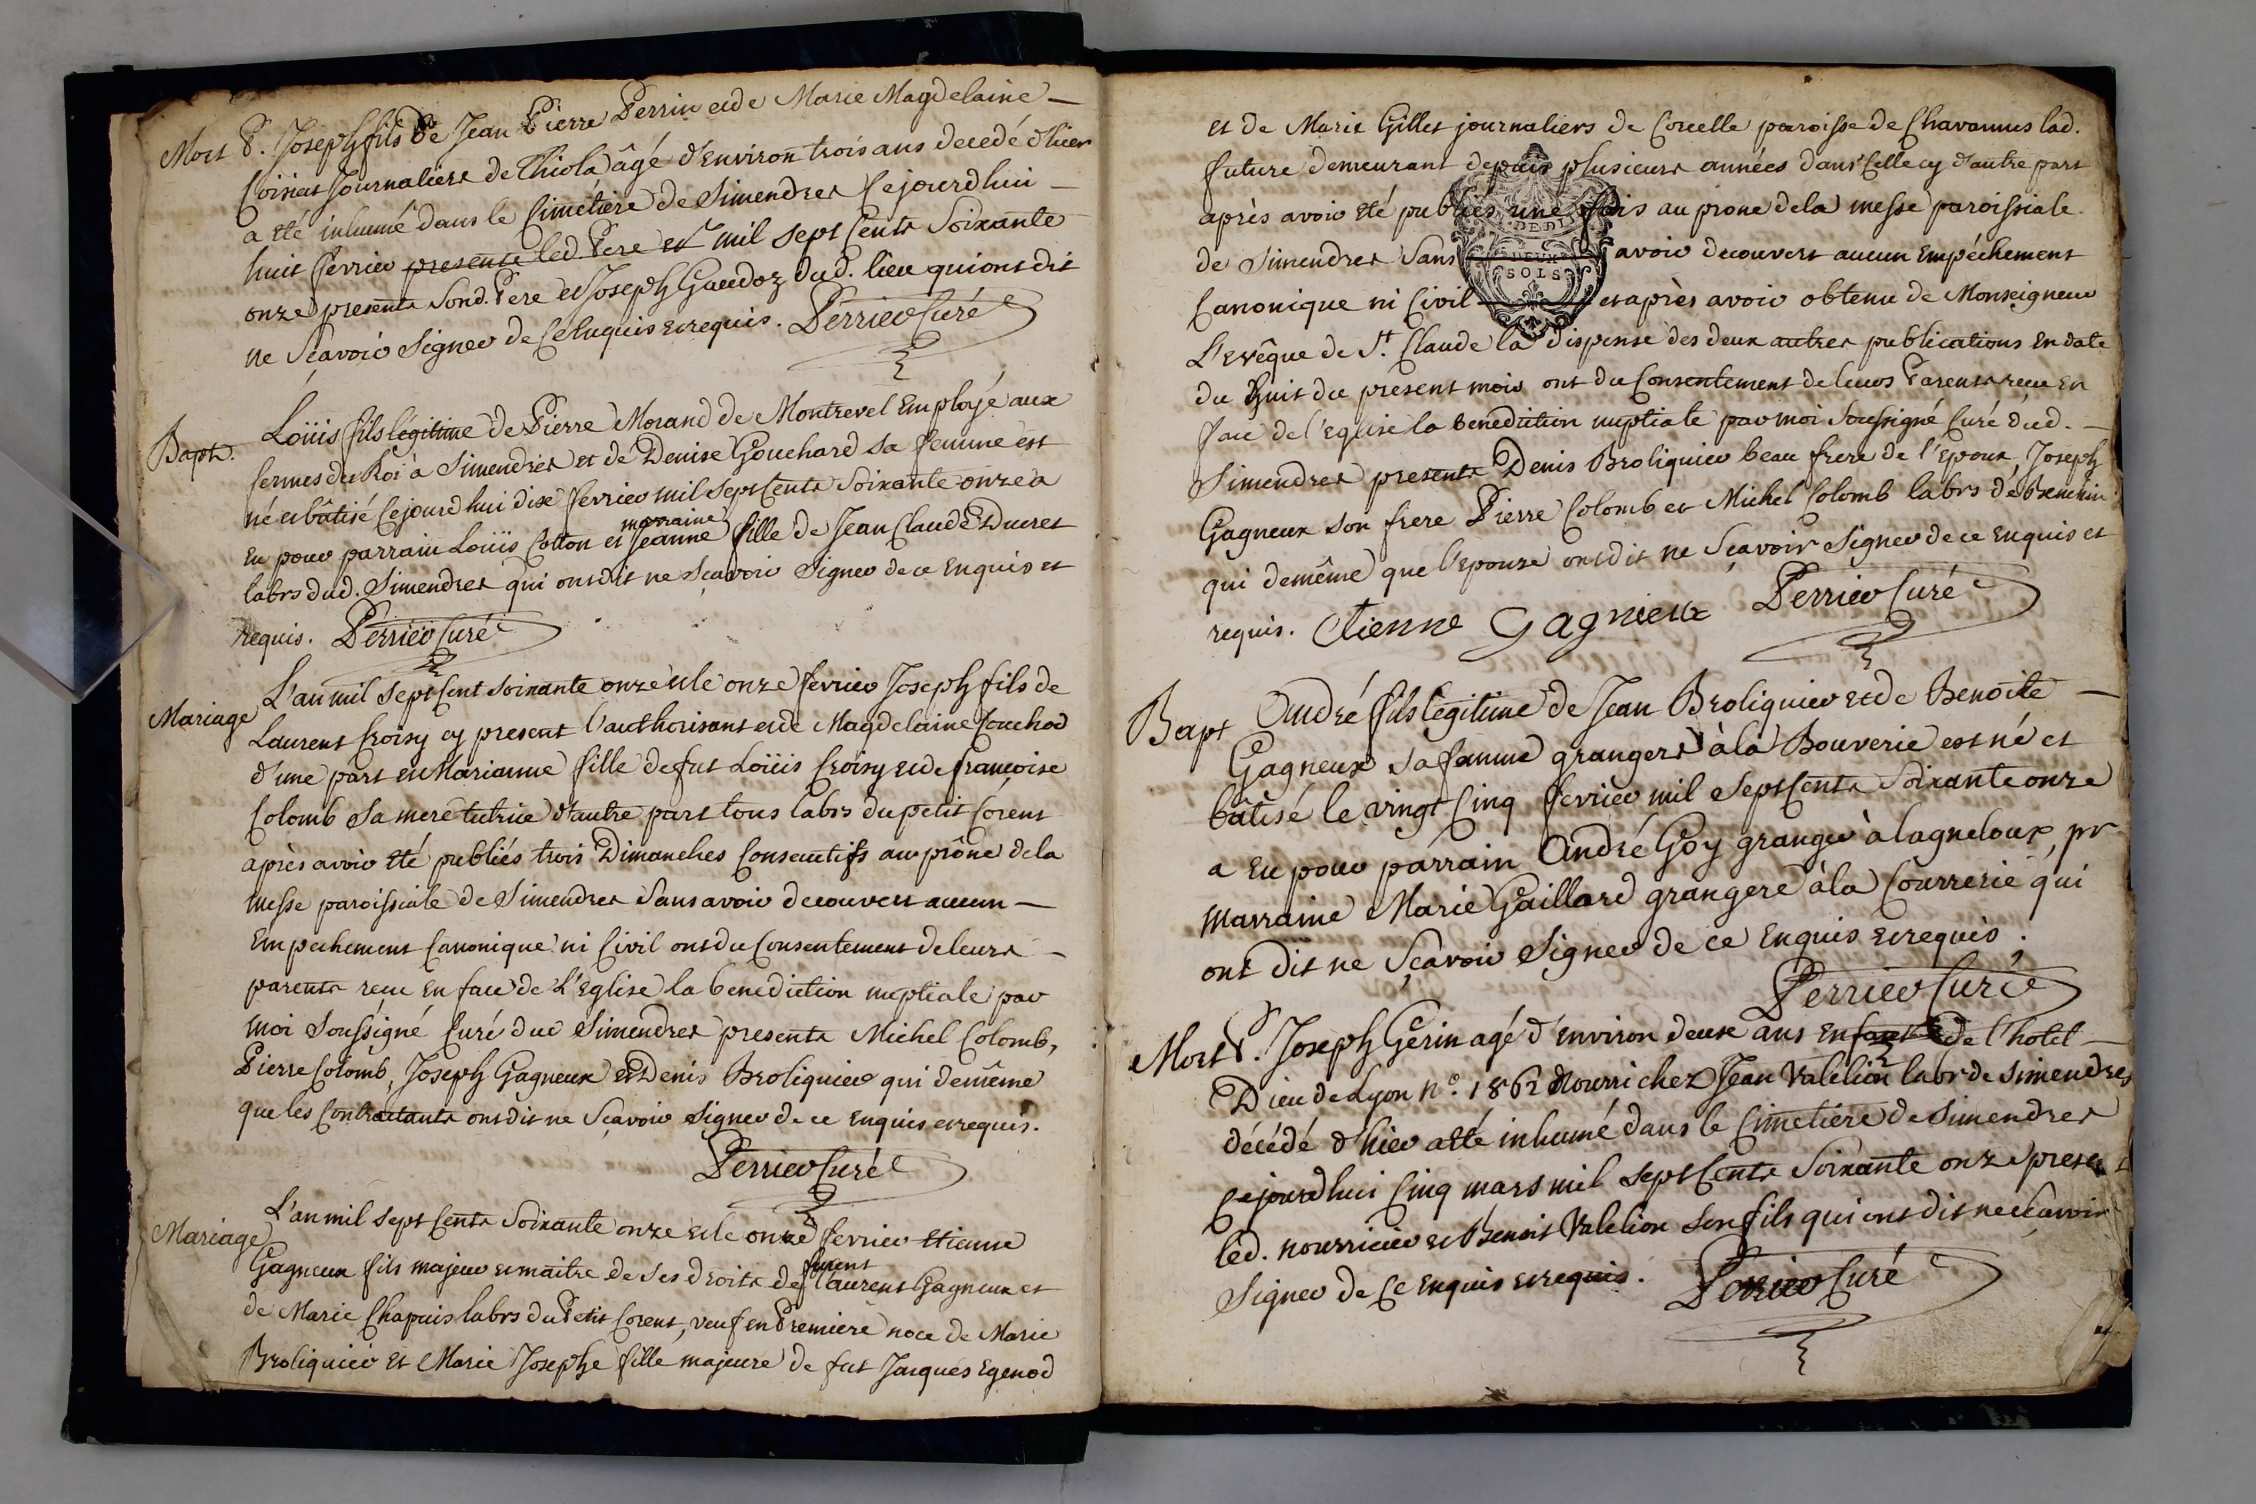 Mort P. Joseph fils de Jean Pierre Perrin et de Marie Magdelaine
Coisiat Journaliers de Thiola âgé d'environ trois ans decedé d'hier
a été inhumé dans le Cimétière de Simendres Cejourdhui
huit fevrier presents led. Pere et mil sept Cents Soixante
onze presents Sond. Pere et Joseph Gaudoz dud. lieu qui ont dit
ne Sçavoir Signer de Ce enquis et requis. Perrier Curé
Bapt. Loüis fils légitime de Pierre Morand de Montrevel Employé aux
fermes du Roi à Simendres et de Denise Gouchard sa femme est
né et bâtisé Cejourdhui dix fevrier mil sept Cents Soixante onze a
marraine
Eu pour parrain Loüis Cotton et Jeanne fille de Jean Claude Ducret
labrs dud. Simendres qui ont dit ne sçavoir Signer de ce Enquis et
requis. Perrier Curé
Mariage L'an mil Sept Cent Soixante onze et le onze fevrier Joseph fils de
Laurent Croisy cy present l'authorisant et de Magdelaine Couchod
d'une part et Marianne fille de fut Loüis Croisy et de françoise
Colomb Sa mere tutrice d'autre part tous labrs du petit Corent
après avoir été publiés trois Dimanches Consecutifs au prône de la
messe paroissiale de Simendres Sans avoir decouvert aucun
Empechement Canonique ni Civil ont du Consentement de leurs
parents recu en face de L'Eglise la benediction nuptiale par
moi Soussigné Curé dud Simendres presents Michel Colomb,
Pierre Colomb, Joseph Gagneux et Denis Broliquier qui de même
que les Contractants ont dit ne Sçavoir Signer de ce enquis et requis.
Perrier Curé
Mariage L'an mil sept Cents Soixante onze et le onze fevrier Etienne
Gagneux fils majeur et maitre de Ses droits de Laurent Gagneux et
de Marie Chapuis labrs du Petit Corent, veuf en Premiere noce de Marie
Broliquier et Marie Josephe fille majeure de fut Jacques Egenod
et de Marie Gillet journaliers de Corcelle paroisse de Chavannes lad.
future demeurant depuis plusieurs années dans Celle cy d'autre part
après avoir été publiés une fois au prone de la messe paroissiale
de Simendres Sans avoir decouvert aucun Empéchement
DEUX
SOLS
Canonique ni Civil et après avoir obtenu de Monseigneur
L'evêque de St. Claude la dispense des deux autres publications En date
du huit du present mois ont du Consentement de leurs Parents recu En
face de l'eglise la benediction nuptiale par moi Soussigné Curé dud.
Simendres presents Denis Broliquier beau frere de l'Epoux, Joseph
Gagneux son frere Pierre Colomb et Michel Colomb labrs
qui de même que l'epouse ont dit ne Sçavoir Signer de ce Enquis et
requis. Etienne Gagnieux Perrier Curé
Bapt André fils légitime de Jean Broliquier et de Benoite
Gagneux sa femme grangers à la Bouverie est né et
bâtisé le vingt Cinq fevrier mil Sept Cents Soixante onze
a eu pour parrain André Goy granger à lagneloux, pr
marraine Marie Gaillard grangere à la Courrerie qui
ont dit ne Sçavoir Signer de ce Enquis et requis.
Perrier Curé
Mort P. Joseph Gerin agé d'environ deux ans de l'hotel
Dieu de Lyon n°. 1862 nourri chez Jean Valelion labr de Simendres
décédé d'hier a été inhumé dans le Cimetiére de Simendres
Cejourdhui Cinq mars mil sept Cents Soixante onze presents
led. nourricier et Benoit Valelion Son fils qui ont dit ne Scavoir
Signer de Ce enquis et requis. Perrier Curé